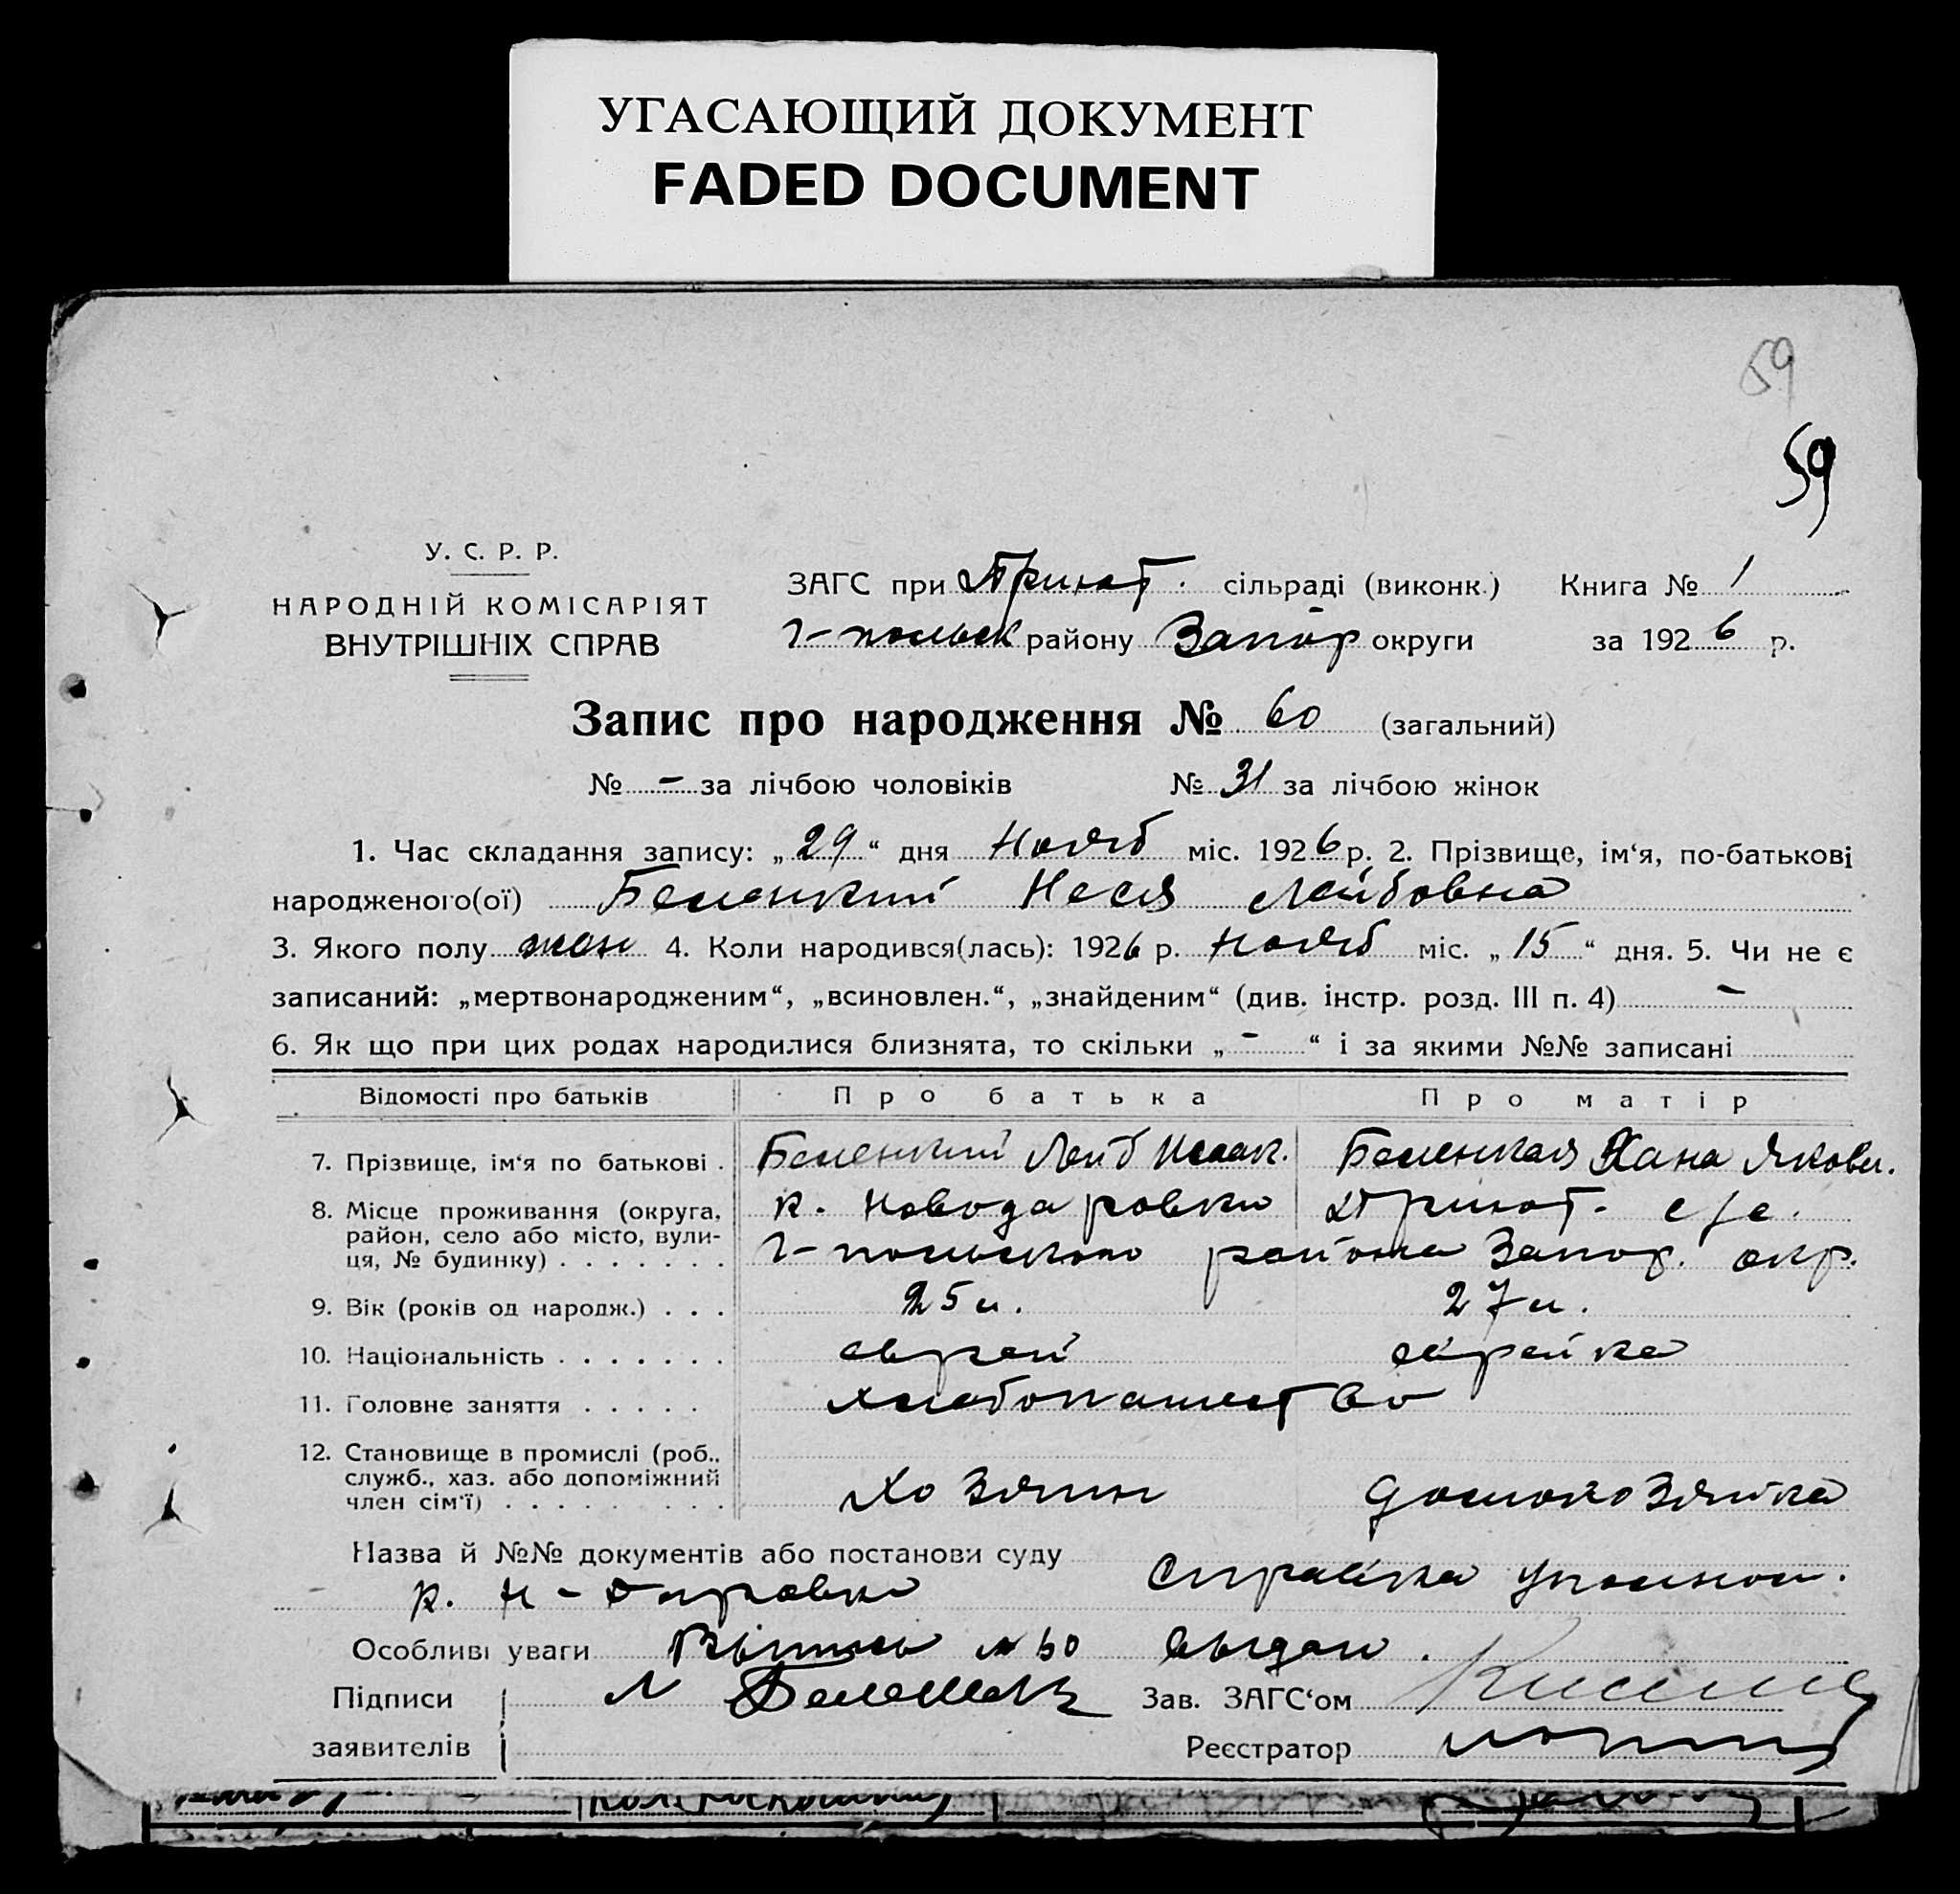 УГАСАЮЩИЙ ДОКУМЕНТ
FADED DOCUMENT
59
59
У. С. Р. Р.
НАРОДНІЙ КОМІСАРІЯТ
ВНУТРІШНІХ СПРАВ
ЗАГС при Приют. сільраді (виконк.) Книга № 1
г-польск району Запор округи за 1926 р.
Запис про народження № 60 (загальний)
№ - за лічбою чоловіків № 31 за лічбою жінок
1. Час складання запису: „29“ дня Нояб міс. 1926 р. 2. Прізвище, ім‘я, по-батькові
народженого(ої) Беленкий Неся Лейбовна
3. Якого полу жен 4. Коли народився(лась): 1926 р. Нояб міс. „15“ дня. 5. Чи не є
записаний: „мертвонародженим“, „всиновлен.“, „знайденим“ (див. інстр. розд. III п. 4) -
6. Як що при цих родах народилися близнята, то скільки „-“ і за якими №№ записані
Відомості про батьків Про батька Про матір
7. Прізвище, ім‘я по батькові . Беленкий Лейб Исаак. Беленкая Хана Яковл.
8. Місце проживання (округа, к. Новодаровки Приют. с/с.
район, село або місто, вули-
ця, № будинку) . . . . . . . г-польского района Запор. окр.
9. Вік (років од народж.) . . . 25 л. 27 л.
10. Національність . . . . . . . еврей еврейка
11. Головне заняття . . . . . хлебопашество
12. Становище в промислі (роб.,
служб., хаз. або допоміжний
член сім‘ї) . . . . . . . . . Хозяин домохозяйка
Назва й №№ документів або постанови суду Справка уполном.
к. Н-Даровки
Особливі уваги Выпись № 60 выдан.
Підписи Л Беленький Зав. ЗАГС‘ом
заявителів Реєстратор